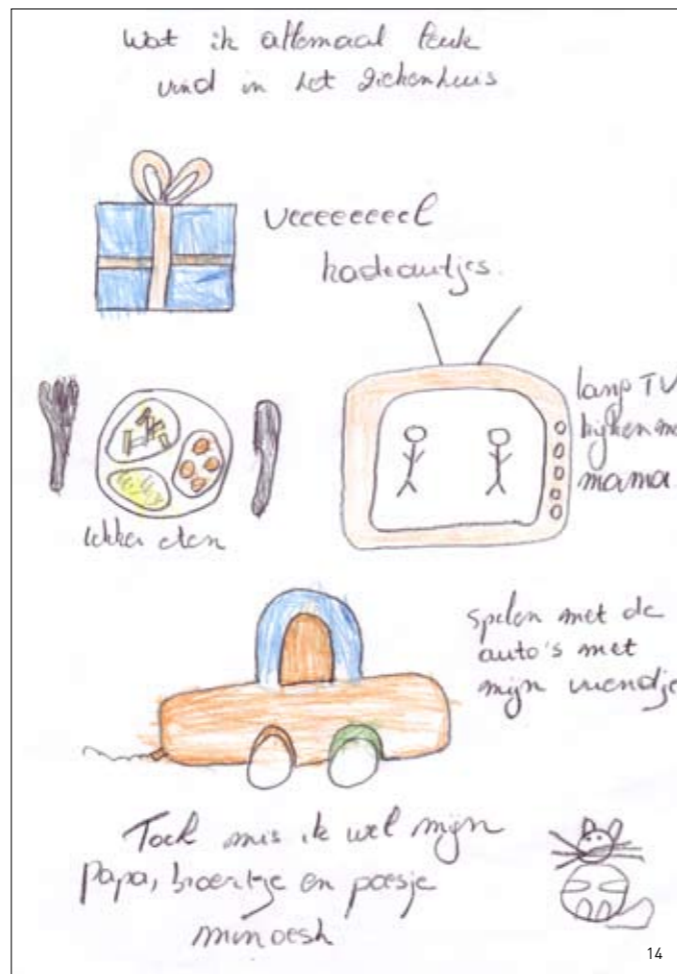 Wat ik allemaal leuk
vind in het ziekenhuis
veeeeeeeel
kadeautjes.
lang TV
kijken me
mama
lekker eten
spelen met de
auto's met
mijn vriendje
Toch mis ik wel mijn
papa, broertje en poesje
minoesh
14